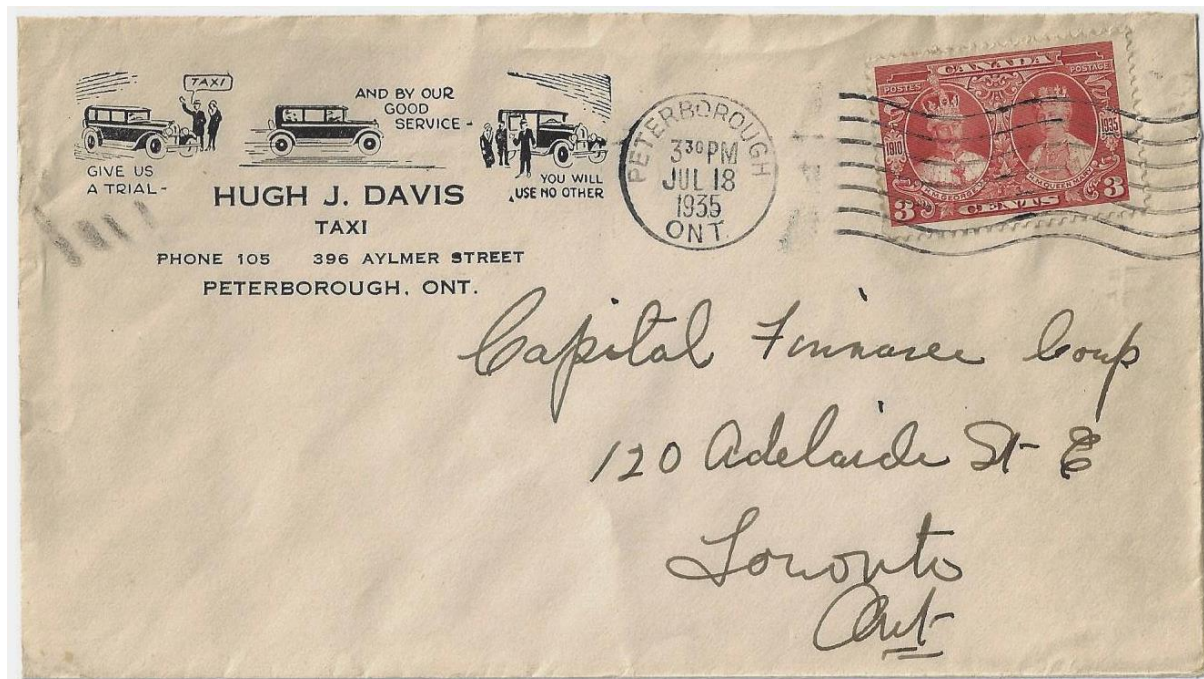 TAXI
GIVE US
A TRIAL-
AND BY OUR
GOOD
SERVICE-
YOU WILL
USE NO OTHER
HUGH J. DAVIS
TAXI
PHONE 105 396 AYLMER STREET
PETERBOROUGH, ONT.
PETERBOROUGH
3 30 PM
JUL 18
1935
ONT.
CANADA
POSTES POSTAGE
1910 1935
H.M. GEORGE V. H.M. QUEEN MARY
3 CENTS 3
Capital Finnance Corp
120 Adelaide St E
Toronto
Ont